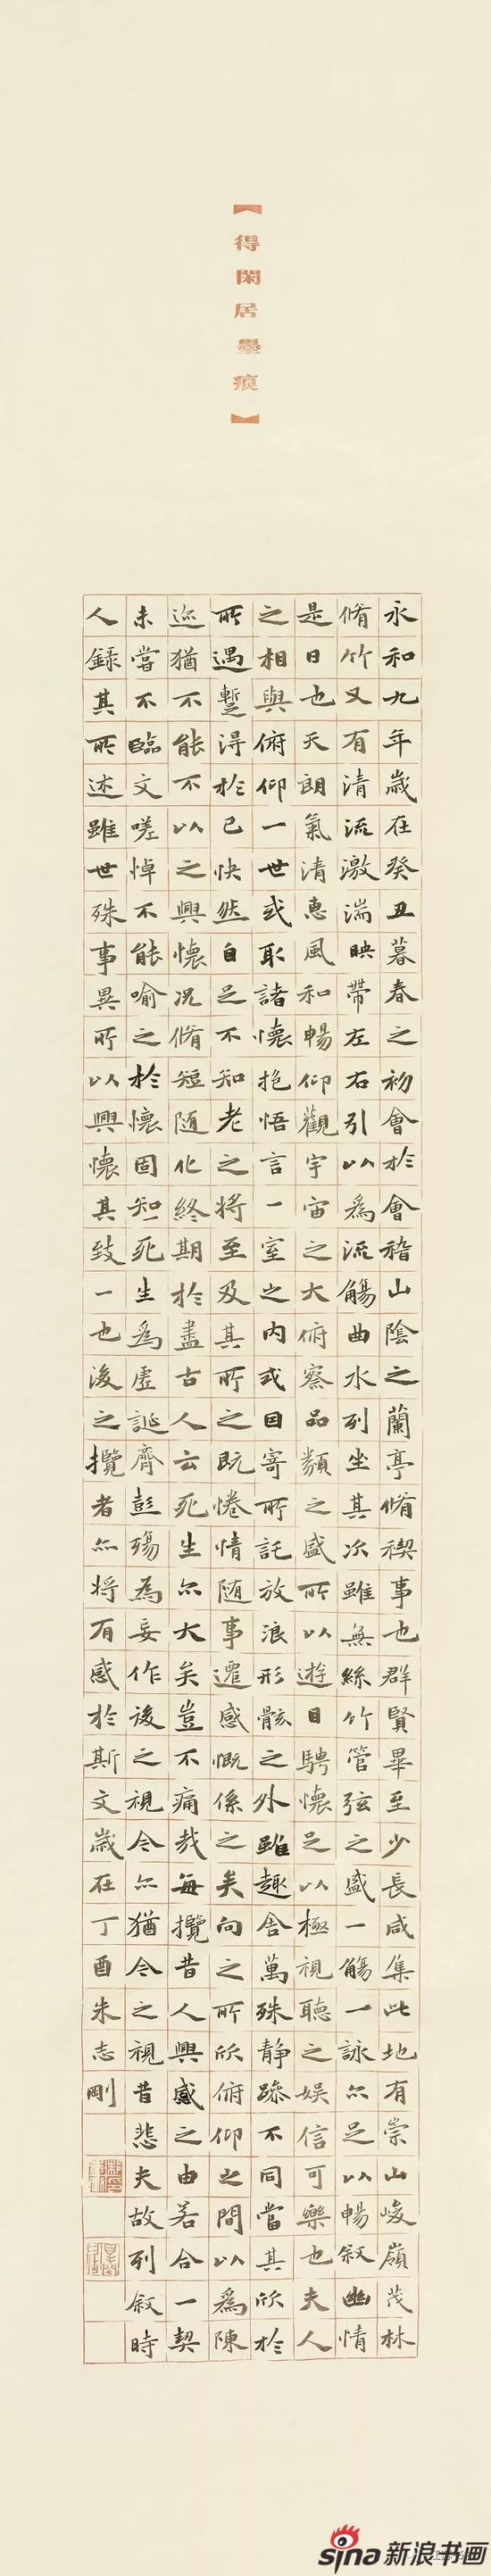 【得閑居墨痕】
永和九年歲在癸丑暮春之初會於會稽山陰之蘭亭脩禊事也群賢畢至少長咸集此地有崇山峻嶺茂林
脩竹又有清流激湍映帶左右引以為流觴曲水列坐其次雖無絲竹管弦之盛一觴一詠亦足以暢敘幽情
是日也天朗氣清惠風和暢仰觀宇宙之大俯察品類之盛所以遊目騁懷足以極視聽之娛信可樂也夫人
之相與俯仰一世或取諸懷抱悟言一室之內或因寄所託放浪形骸之外雖趣舍萬殊静躁不同當其欣於
所遇蹔得於己快然自足不知老之将至及其所之既惓情随事遷感慨係之矣向之所欣俯仰之間以為陳
迹猶不能不以之興懷況脩短随化終期於盡古人云死生亦大矣豈不痛哉每攬昔人興感之由若合一契
未嘗不臨文嗟悼不能喻之於懷固知一死生為虛誕齊彭殤為妄作後之視今亦猶今之視昔悲夫故列敘時
人録其所述雖世殊事異所以興懷其致一也後之攬者亦将有感於斯文歲在丁酉朱志剛
sina新浪书画